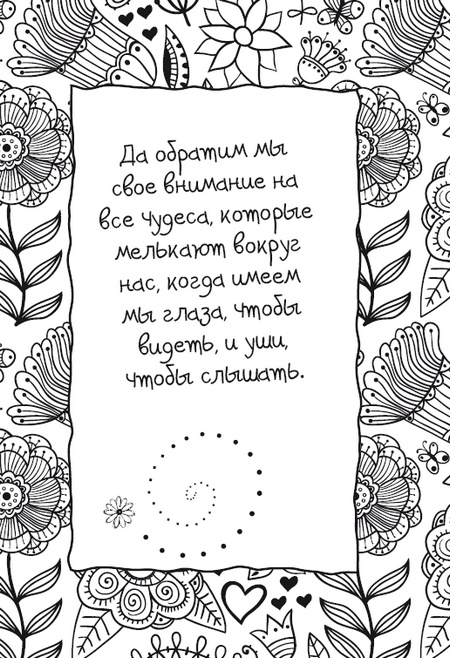 Да обратим мы
свое внимание на
все чудеса, которые
мелькают вокруг
нас, когда имеем
мы глаза, чтобы
видеть, и уши,
чтобы слышать.